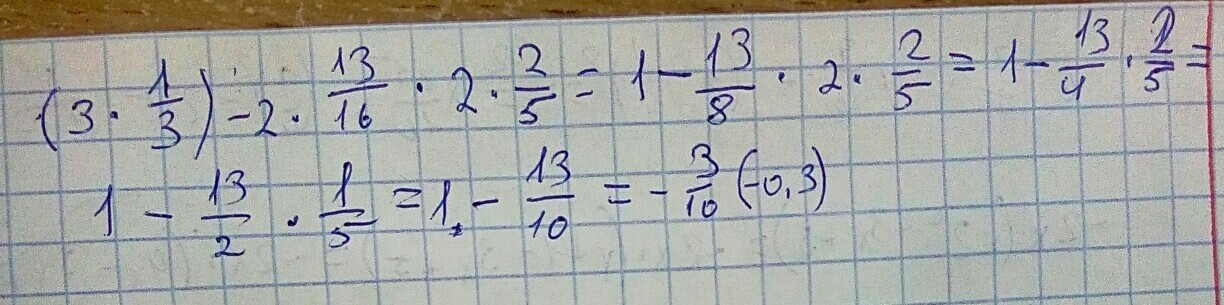 (3 · 1/3) - 2 · 13/16 · 2 · 2/5 = 1 - 13/8 · 2 · 2/5 = 1 - 13/4 · 2/5 =
1 - 13/2 · 1/5 = 1 - 13/10 = - 3/10 (-0,3)